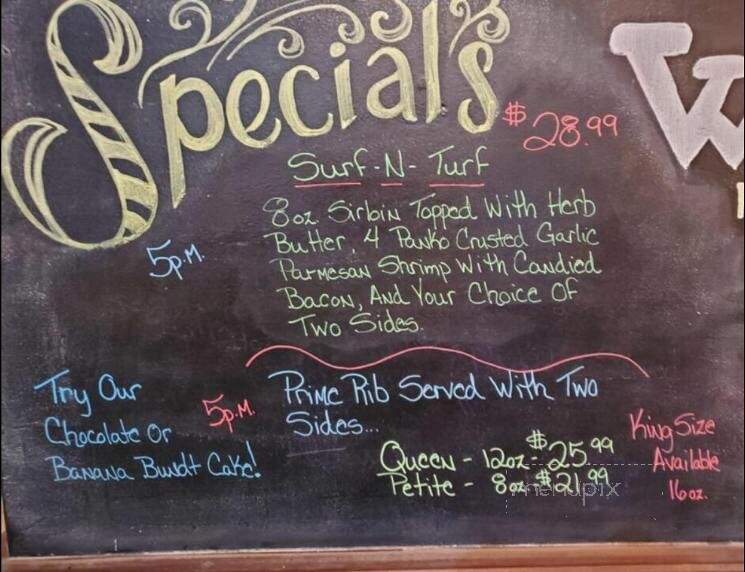 Specials
W
$28.99
Surf-N-Turf
8oz Sirloin Topped With Herb
Butter, 4 Panko Crusted Garlic
Parmesan Shrimp With Candied
Bacon, And Your Choice Of
Two Sides.
5p.m.
Try Our
Chocolate Or
Banana Bundt Cake!
5p.m.
Prime Rib Served With Two
Sides...
Queen - 12oz - $25.99
Petite - 8oz - $21.99
King Size
Available
16oz.
menupix